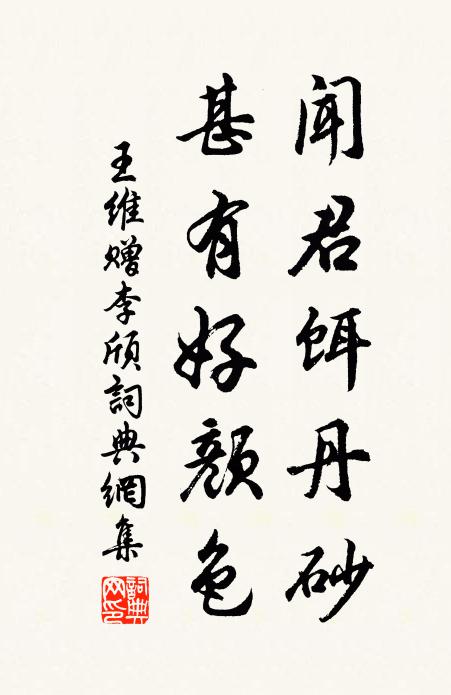 闻君饵丹砂
甚有好颜色
王维赠李颀词典網集
詞典
网印